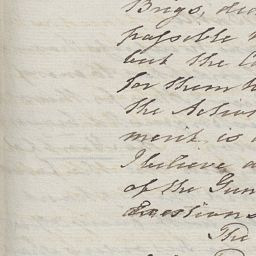 Brigs, did
possible
but the
for them
the Action
merit is
I believe
of the Gun
Exertions
The